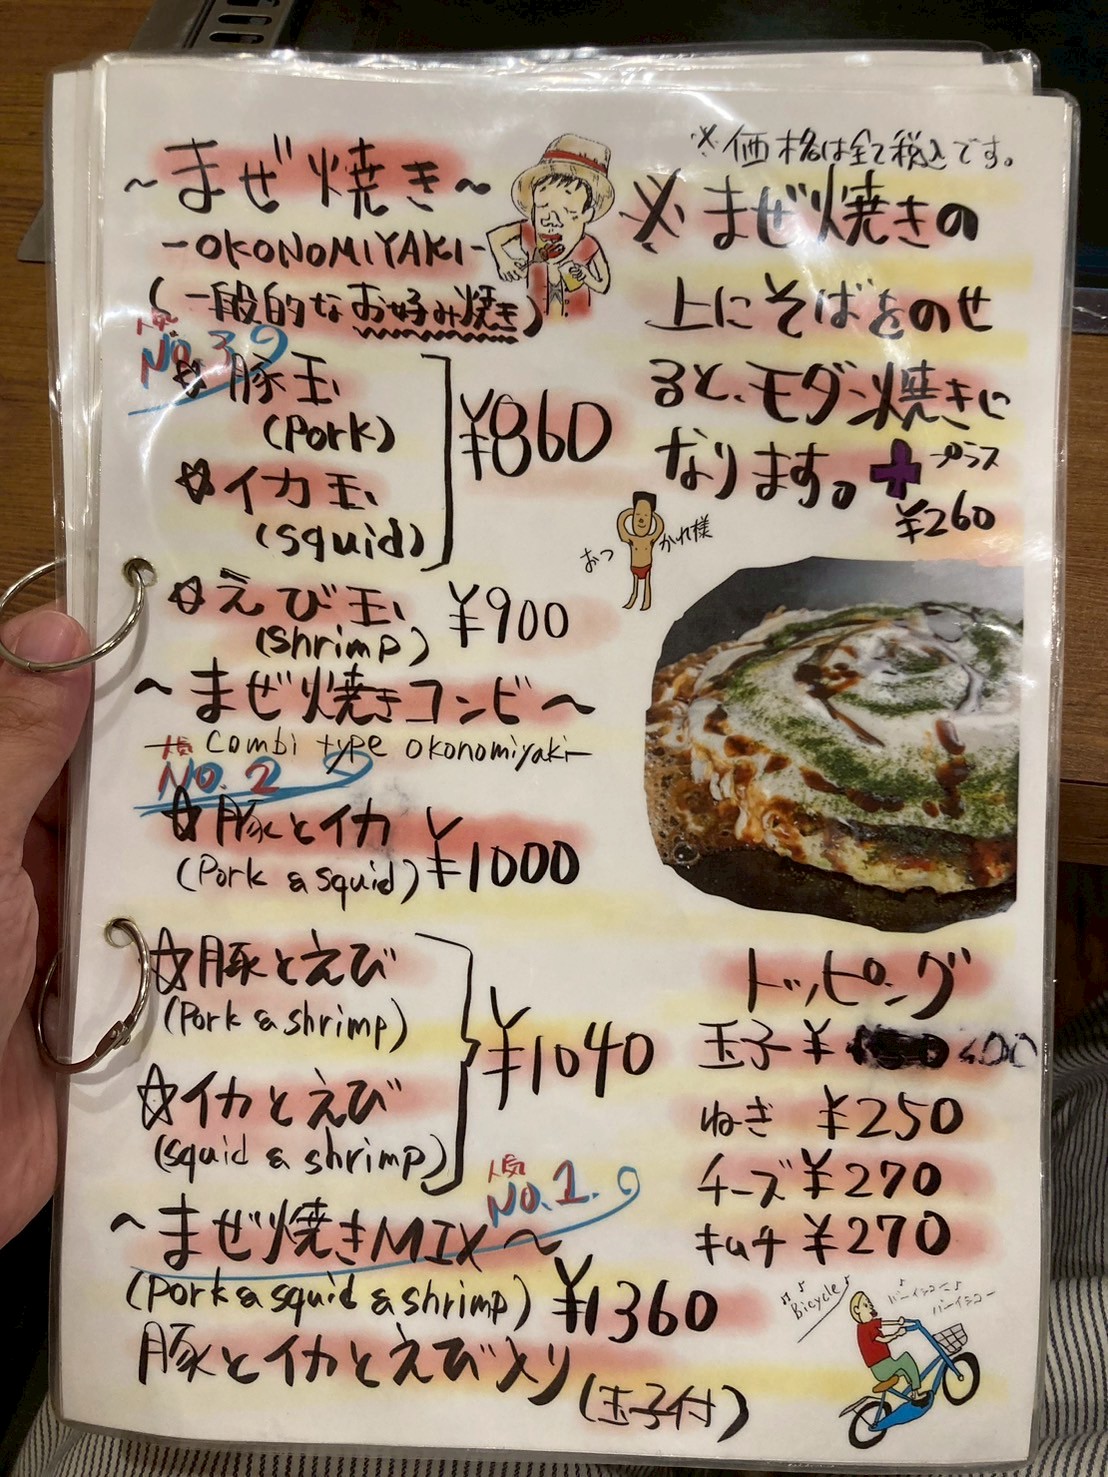 ～まぜ焼き～
-OKONOMIYAKI-
(一般的なお好み焼き)
人気
No.3
☆豚玉
(Pork)
☆イカ玉
(squid)
¥860
☆えび玉
(shrimp)
¥900
～まぜ焼きコンビ～
-Combi type okonomiyaki-
人気
No.2
☆豚とイカ
(Pork & squid)
¥1000
☆豚とえび
(Pork & shrimp)
☆イカとえび
(squid & shrimp)
¥1040
人気
No.1.
～まぜ焼きMIX～
(Pork & squid & shrimp)
¥1360
豚とイカとえび入り
(玉子付)
※価格は全て税込です。
※まぜ焼きの
上にそばをのせ
ると、モダン焼きに
なります。
+プラス
¥260
おつかれ様
トッピング
玉子 ¥
ねぎ ¥250
チーズ ¥270
キムチ ¥270
Bicycle